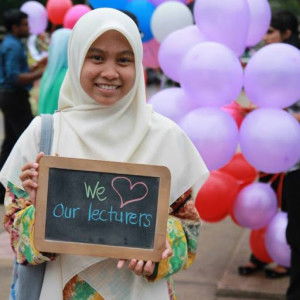 We ♡
Our lecturers